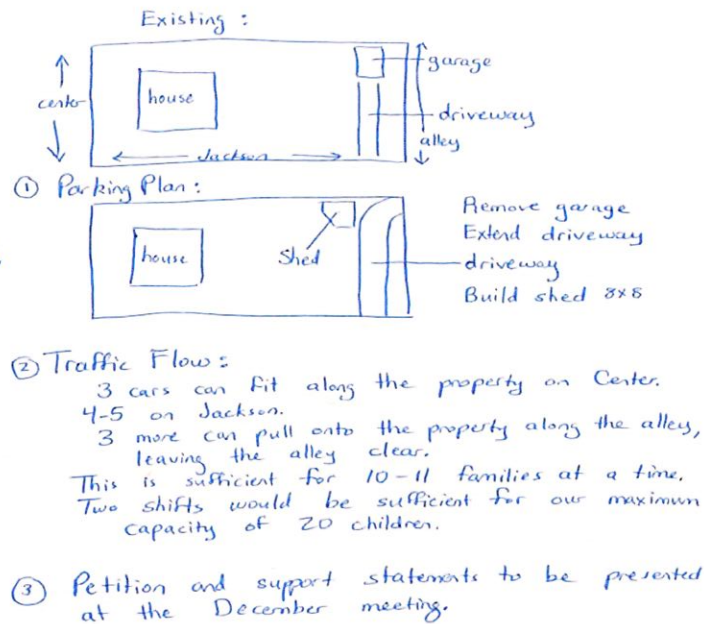 Existing :
garage
center
house
driveway
alley
Jackson
① Parking Plan :
Remove garage
Extend driveway
house
Shed
driveway
Build shed 8x8
② Traffic Flow :
3 cars can fit along the property on Center.
4-5 on Jackson.
3 more can pull onto the property along the alley,
leaving the alley clear.
This is sufficient for 10-11 families at a time.
Two shifts would be sufficient for our maximum
capacity of 20 children.
③ Petition and support statements to be presented
at the December meeting.